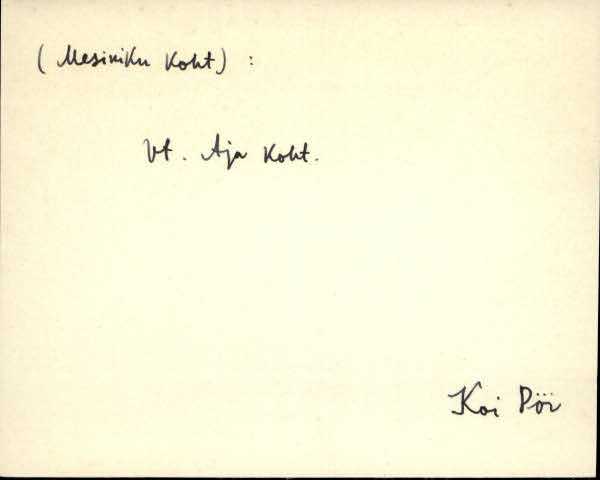 (Mesiniku koht) :
Vt. Aja koht.
Koi Pöi